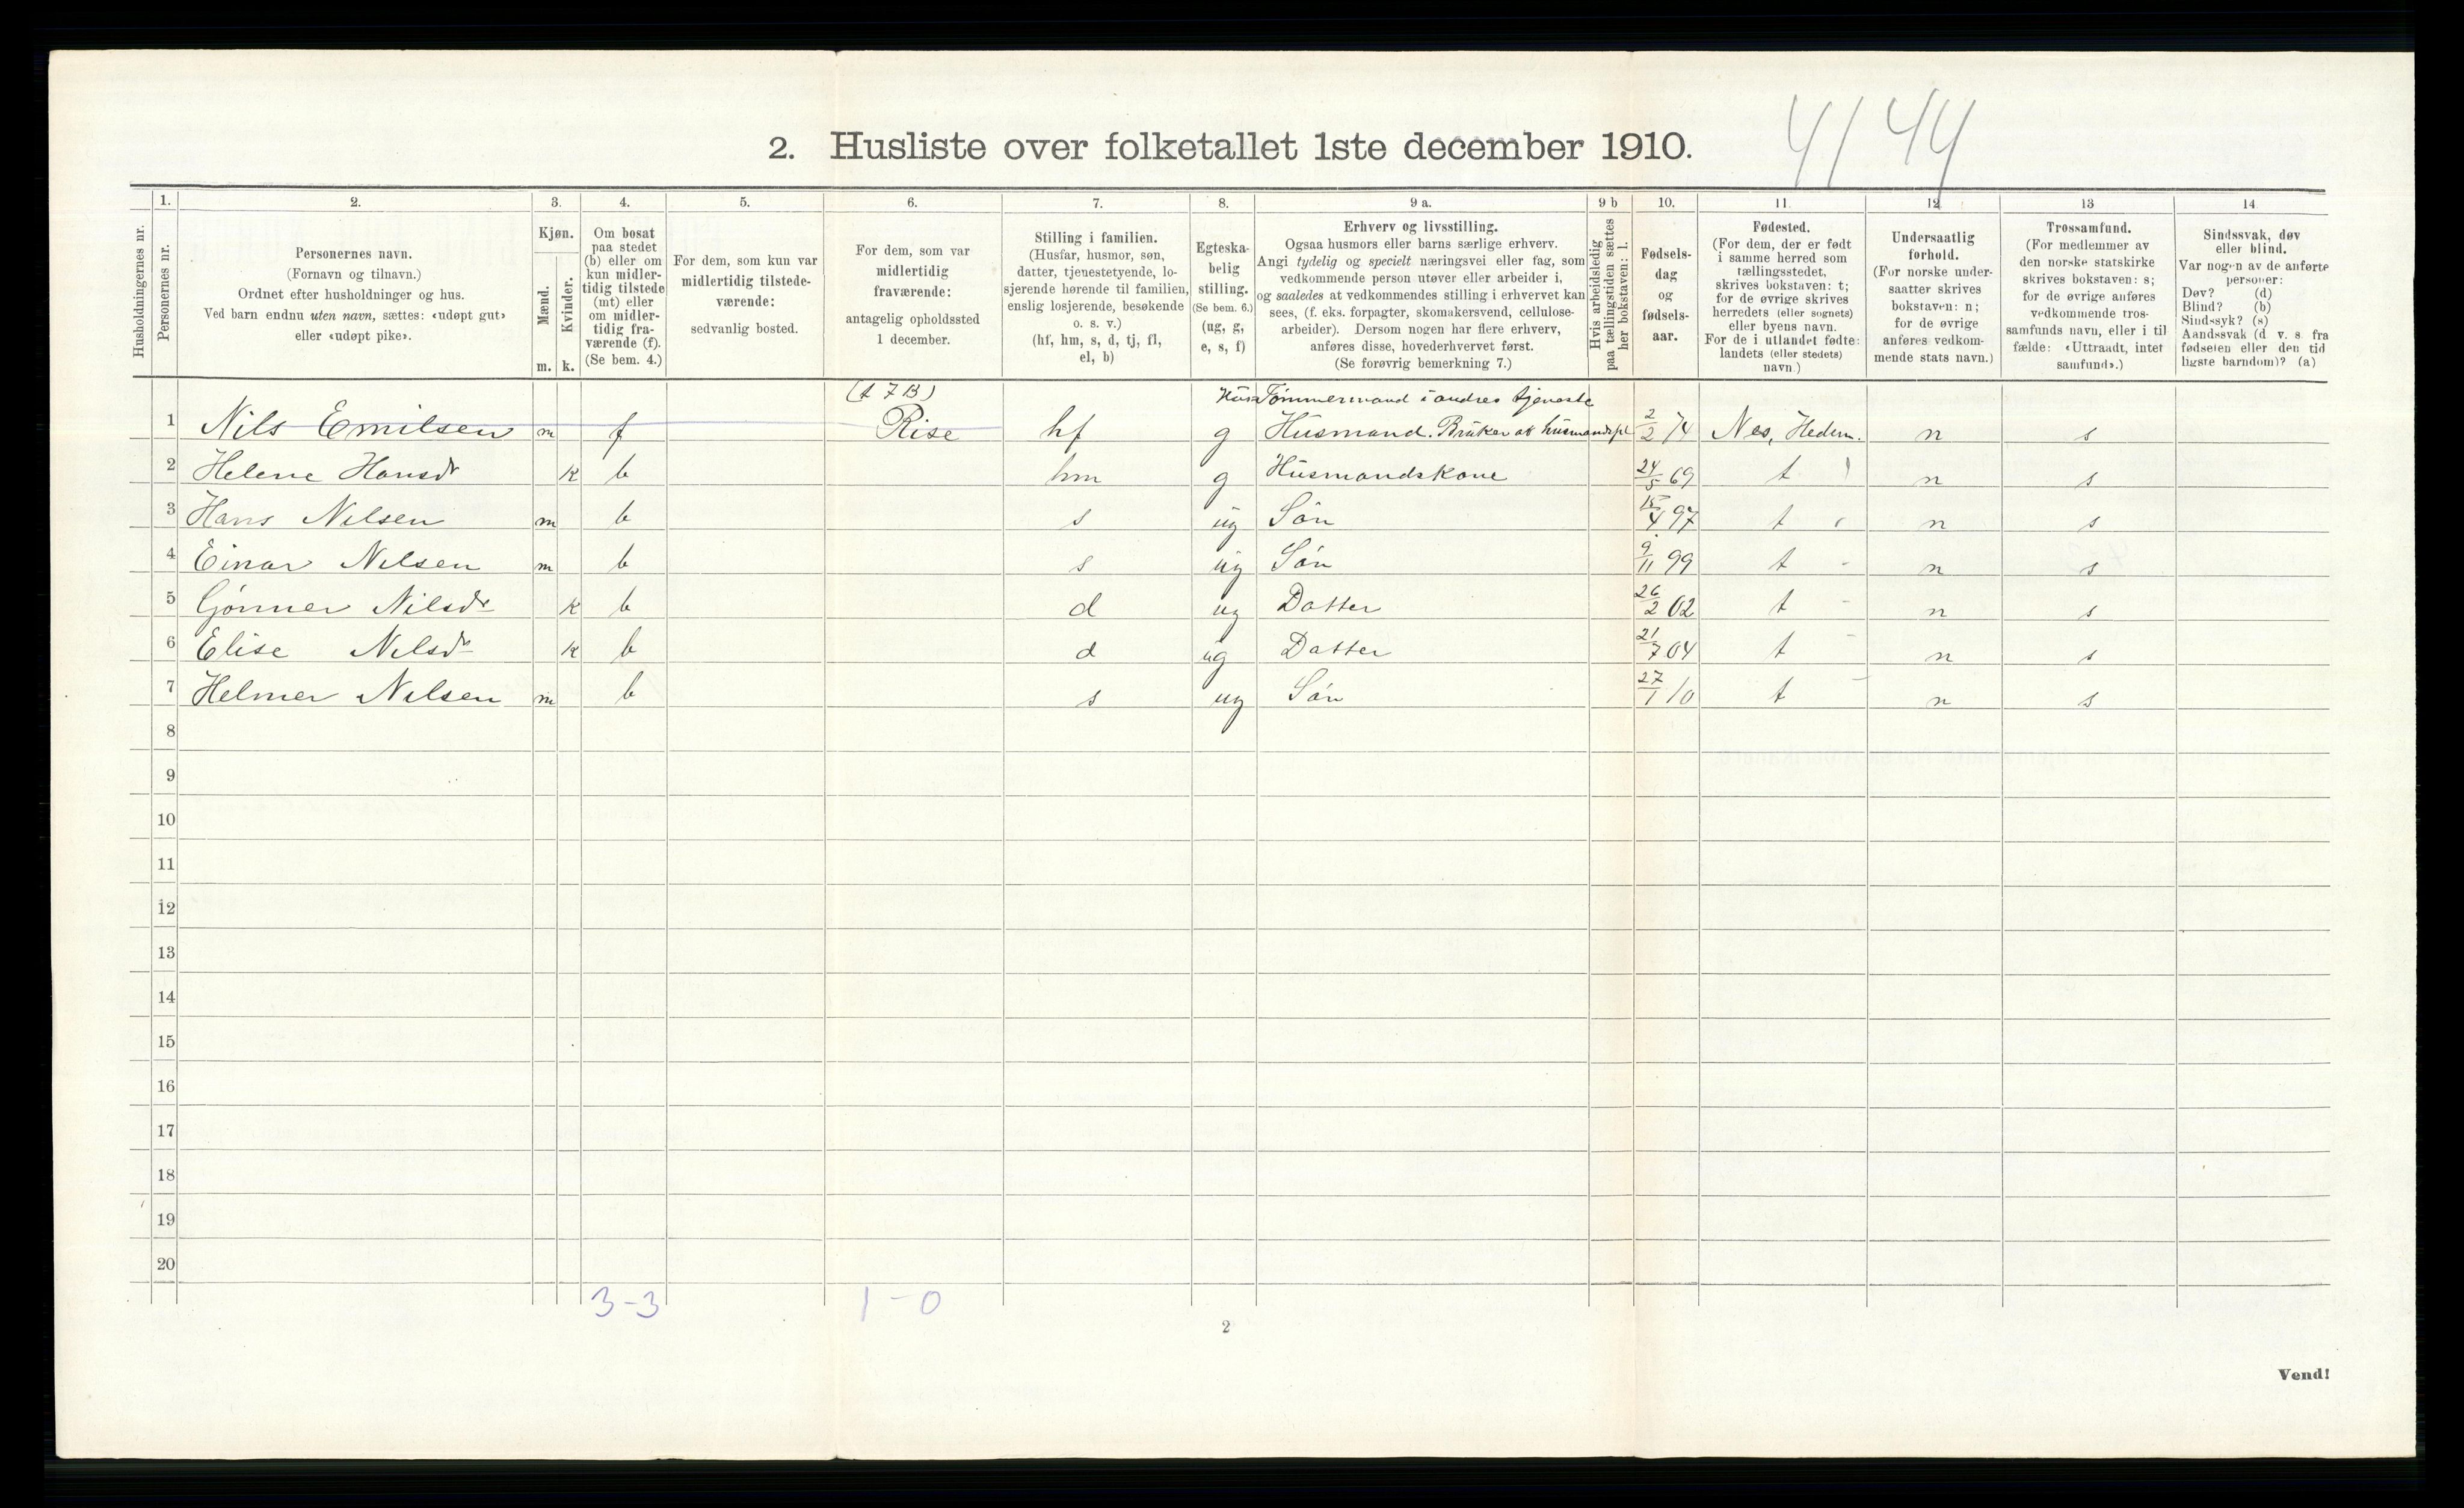 4144
2. Husliste over folketallet 1ste december 1910.
1. 2. 3. 4. 5. 6. 7. 8. 9 a. 9 b 10. 11. 12 13 14
Husholdningernes nr.
Personernes nr.
Personernes navn.
(Fornavn og tilnavn.)
Ordnet efter husholdninger og hus.
Ved barn endnu uten navn, sættes: «udøpt gut»
eller «udøpt pike».
Kjøn.
Mænd.
Kvinder.
m. k.
Om bosat
paa stedet
(b) eller om
kun midler-
tidig tilstede
(mt) eller
om midler-
tidig fra-
værende (f).
(Se bem. 4.)
For dem, som kun var
midlertidig tilstede-
værende:
sedvanlig bosted.
For dem, som var
midlertidig
fraværende:
antagelig opholdssted
1 december.
Stilling i familien.
(Husfar, husmor, søn,
datter, tjenestetyende, lo-
sjerende hørende til familien,
enslig losjerende, besøkende
o. s. v.)
(hf, hm, s, d, tj, fl,
el, b)
Egteska-
belig
stilling.
(Se bem. 6.)
(ug, g,
e, s, f)
Erhverv og livsstilling.
Ogsaa husmors eller barns særlige erhverv.
Angi tydelig og specielt næringsvei eller fag, som
vedkommende person utøver eller arbeider i,
og saaledes at vedkommendes stilling i erhvervet kan
sees, (f. eks. forpagter, skomakersvend, cellulose-
arbeider). Dersom nogen har flere erhverv,
anføres disse, hovederhvervet først.
(Se forøvrig bemerkning 7.)
Hvis arbeidsledig
paa tællingstiden sættes
her bokstaven: l.
Fødsels-
dag
og
fødsels-
aar.
Fødested.
(For dem, der er født
i samme herred som
tællingsstedet,
skrives bokstaven: t;
for de øvrige skrives
herredets (eller sognets)
eller byens navn.
For de i utlandet fødte:
landets (eller stedets)
navn.)
Undersaatlig
forhold.
(For norske under-
saatter skrives
bokstaven: n;
for de øvrige
anføres vedkom-
mende stats navn.)
Trossamfund.
(For medlemmer av
den norske statskirke
skrives bokstaven: s;
for de øvrige anføres
vedkommende tros-
samfunds navn, eller i til
fælde: «Uttraadt, intet
samfund».)
Sindssvak, døv
eller blind.
Var nogen av de anførte
personer:
Døv? (d)
Blind? (b)
Sindssyk? (s)
Aandssvak (d v. s fra
fødselen eller den tid
ligste barndom)? (a)
(t 7 B) Hus Tømmermand i andres tjeneste
1 Nils Emilsen m f Rise hf g Husmand. Bruker af husmandspl 2/2 74 Nes, Hedem. n s
2 Helene Hansdr k b hm g Husmandskone 24/5 69 t n s
3 Hans Nilsen m b s ug Søn 15/4 97 t n s
4 Einar Nilsen m b s ug Søn 9/11 99 t - n s
5 Gønner Nilsdr k b d ug Datter 26/2 02 t - n s
6 Elise Nilsdr k b d ug Datter 21/7 04 t - n s
7 Helmer Nilsen m b s ug Søn 27/1 10 t - n s
8
9
10
11
12
13
14
15
16
17
18
19
20
3-3 1-0
2
Vend!